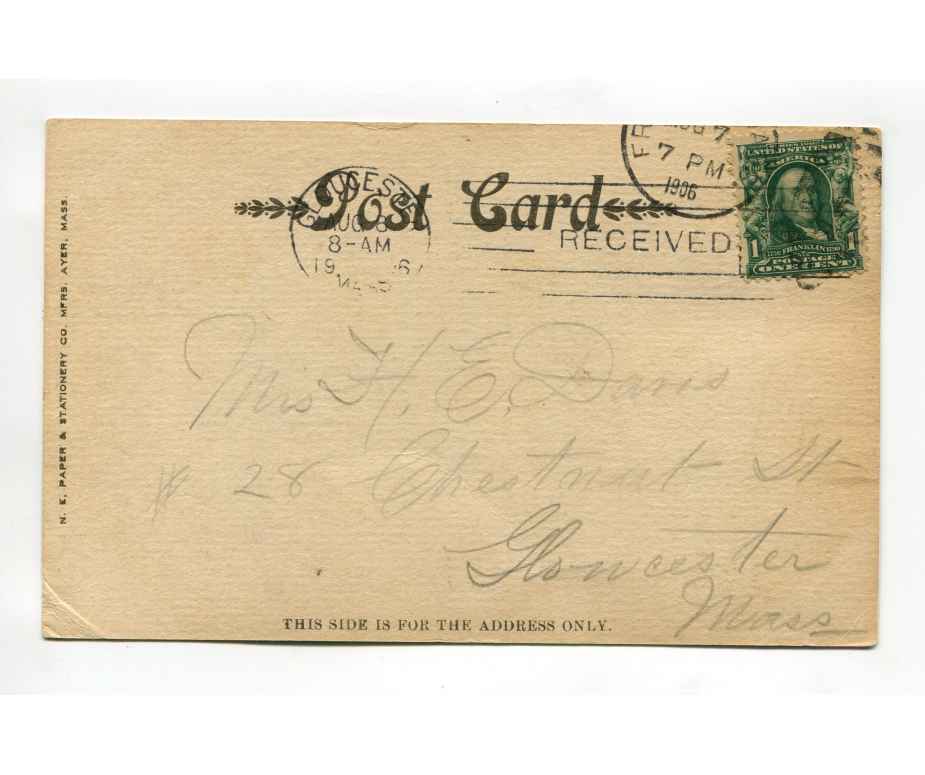 Post Card
GLOUCESTER
AUG 8
8-AM
19 6
MASS
RECEIVED
FR
AUG 7
7 PM
1906
UNITED STATES OF
AMERICA
1 FRANKLIN 1
POSTAGE
ONE CENT
N. E. PAPER & STATIONERY CO. MFRS. AYER, MASS.
Mrs H. E. Davis
# 28 Chestnut St
Gloucester
Mass
THIS SIDE IS FOR THE ADDRESS ONLY.